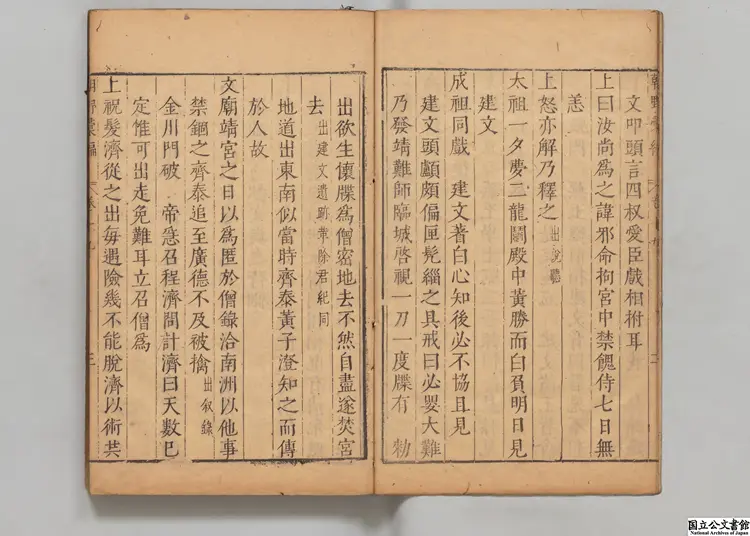 文叩頭言四叔愛臣戲相拊耳
上曰汝尚為之諱邪命拘宮中禁餽侍七日無
恙
上怒亦解乃釋之出說聽
建文
太祖一夕夢二龍鬭殿中黃勝而白負明日見
成祖同戲 建文著白心知後必不協且見
建文頭顱頗偏匣髡緇之具戒曰必嬰大難
乃發靖難師臨城啓視一刀一度牒有 勑
出欲生懷牒為僧密地去不然自盡遂焚宮
去出建文遺跡 除君紀同
地道出東南似當時齊泰黃子澄知之而傳
於人故
文廟靖宮之日以為匿於僧錄洽南洲以他事
禁錮之齊泰追至廣德不及被擒出叙錄
金川門破 帝急召程濟問計濟曰天數已
定惟可出走免難耳立召僧為
上祝髮濟從之出每遇險幾不能脫濟以術共
三
国立公文書館
National Archives of Japan